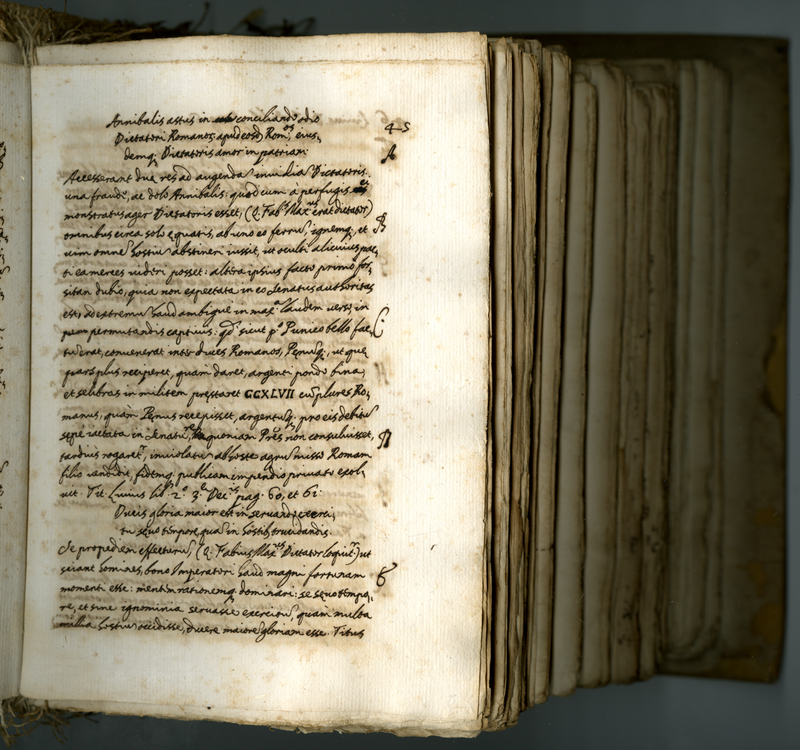 Annibalis astus in conciliando odio
Dictatori Romano, apud eosd. Rom.os, eius,
demq; Dictatoris amor in patriam.
45
A
Accesserant duæ res ad augendã inuidiã Dictatoris.
una fraude, ac dolo Annibalis: quod cum à perfugis ei
monstratus ager Dictatoris esset, (Q. Fab.s Max.us erat dictator)
omnibus circa solo æquatis, ab uno eo ferrũ, ignemq;, et
B
uim omnẽ hostiũ abstineri iussit, ut occulti alicuius pac,
ti ea merces uideri posset: altera ipsius facto primo for,
sitan dubio, quia non expectata in eo Senatus authoritas
est, ad extremũ haud ambiguè in max.ã laudem uerso, in
permutandis captiuis: qđ sicut p.o Punico bello fac,
C
tũ erat, conuenerat inter duces Romanos, Penũq;, ut quæ
pars plus reciperet, quàm daret, argenti pondo bina,
et selibras in militem præstaret CCXLVII cũ plures Ro,
manus, quàm Pęnus recepisset, argentũq; pro eis debitũ
sępè iactata in Senatu re, quoniam Pres non consuluisset,
D
tardius rogaret.r, inuiolatũ ab hoste agrũ misso Romam
filio uendidit, fidemq; publicam impendio priuato exol,
uit. Tit. Liuius lib. 2.o 3.e Dec.s pag. 60, et 61.
Ducis gloria maior est in seruando exerci,
tu sęuo tempore, quã in hostib. trucidandis.
Se propediem effecturũ (Q. Fabius Max.us Dictator loquit.r) ut
sciant homines, bono Imperatori haud magni fortunam
E
momenti esse: mentem rationemq; dominari: se sęuo tempo,
re, et sine ignominia seruasse exercitũ, quàm multa
millia hostiũ occidisse, ducere maiorẽ gloriam esse. Titus